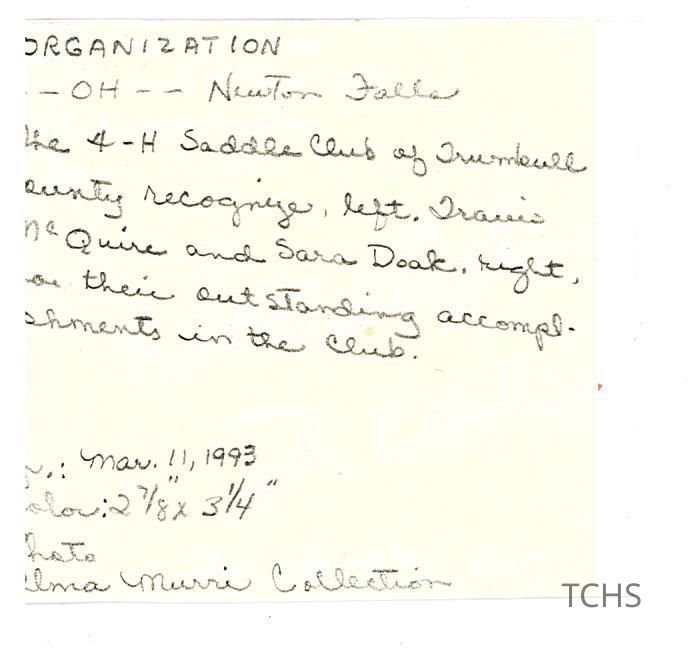 ORGANIZATION
- - OH - - Newton Falls
The 4-H Saddle Club of Trumbull
ounty recognize, left, Travis
McQuire and Sara Doak, right,
or their outstanding accompl-
shments in the club.
Mar. 11, 1993
olor: 2 7/8" x 3 1/4"
hoto
elma Murri Collection
TCHS